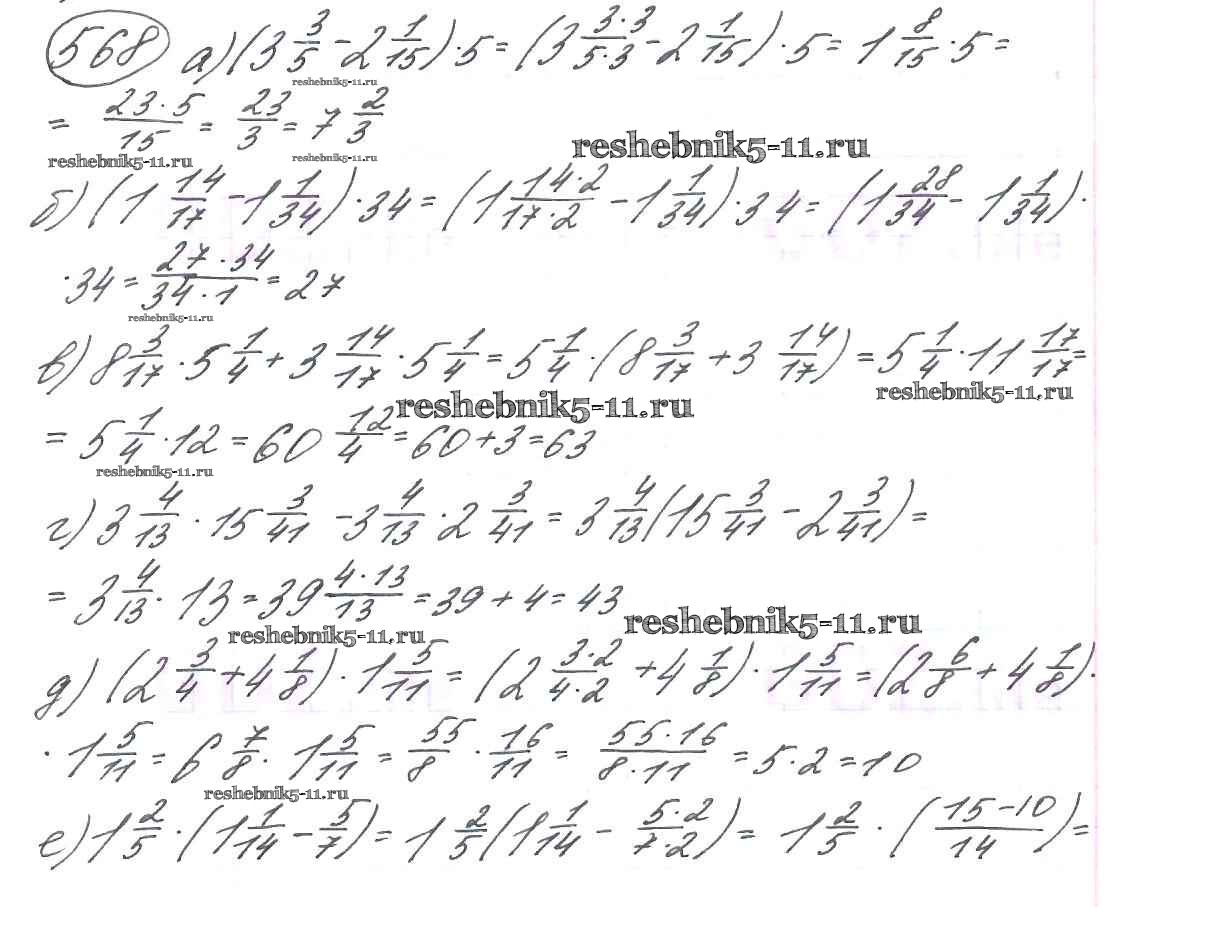 568 а) (3 3/5 - 2 1/15) · 5 = (3 3·3/5·3 - 2 1/15) · 5 = 1 8/15 · 5 =
reshebnik5-11.ru
= 23·5/15 = 23/3 = 7 2/3
reshebnik5-11.ru reshebnik5-11.ru reshebnik5-11.ru
б) (1 14/17 - 1 1/34) · 34 = (1 14·2/17·2 - 1 1/34) · 34 = (1 28/34 - 1 1/34) ·
· 34 = 27·34/34·1 = 27
reshebnik5-11.ru
в) 8 3/17 · 5 1/4 + 3 14/17 · 5 1/4 = 5 1/4 · (8 3/17 + 3 14/17) = 5 1/4 · 11 17/17 =
reshebnik5-11.ru reshebnik5-11.ru
= 5 1/4 · 12 = 60 12/4 = 60 + 3 = 63
reshebnik5-11.ru
г) 3 4/13 · 15 3/41 - 3 4/13 · 2 3/41 = 3 4/13 (15 3/41 - 2 3/41) =
= 3 4/13 · 13 = 39 4·13/13 = 39 + 4 = 43
reshebnik5-11.ru reshebnik5-11.ru
д) (2 3/4 + 4 1/8) · 1 5/11 = (2 3·2/4·2 + 4 1/8) · 1 5/11 = (2 6/8 + 4 1/8) ·
· 1 5/11 = 6 7/8 · 1 5/11 = 55/8 · 16/11 = 55·16/8·11 = 5 · 2 = 10
reshebnik5-11.ru
е) 1 2/5 · (1 1/14 - 5/7) = 1 2/5 (1 1/14 - 5·2/7·2) = 1 2/5 · (15-10/14) =